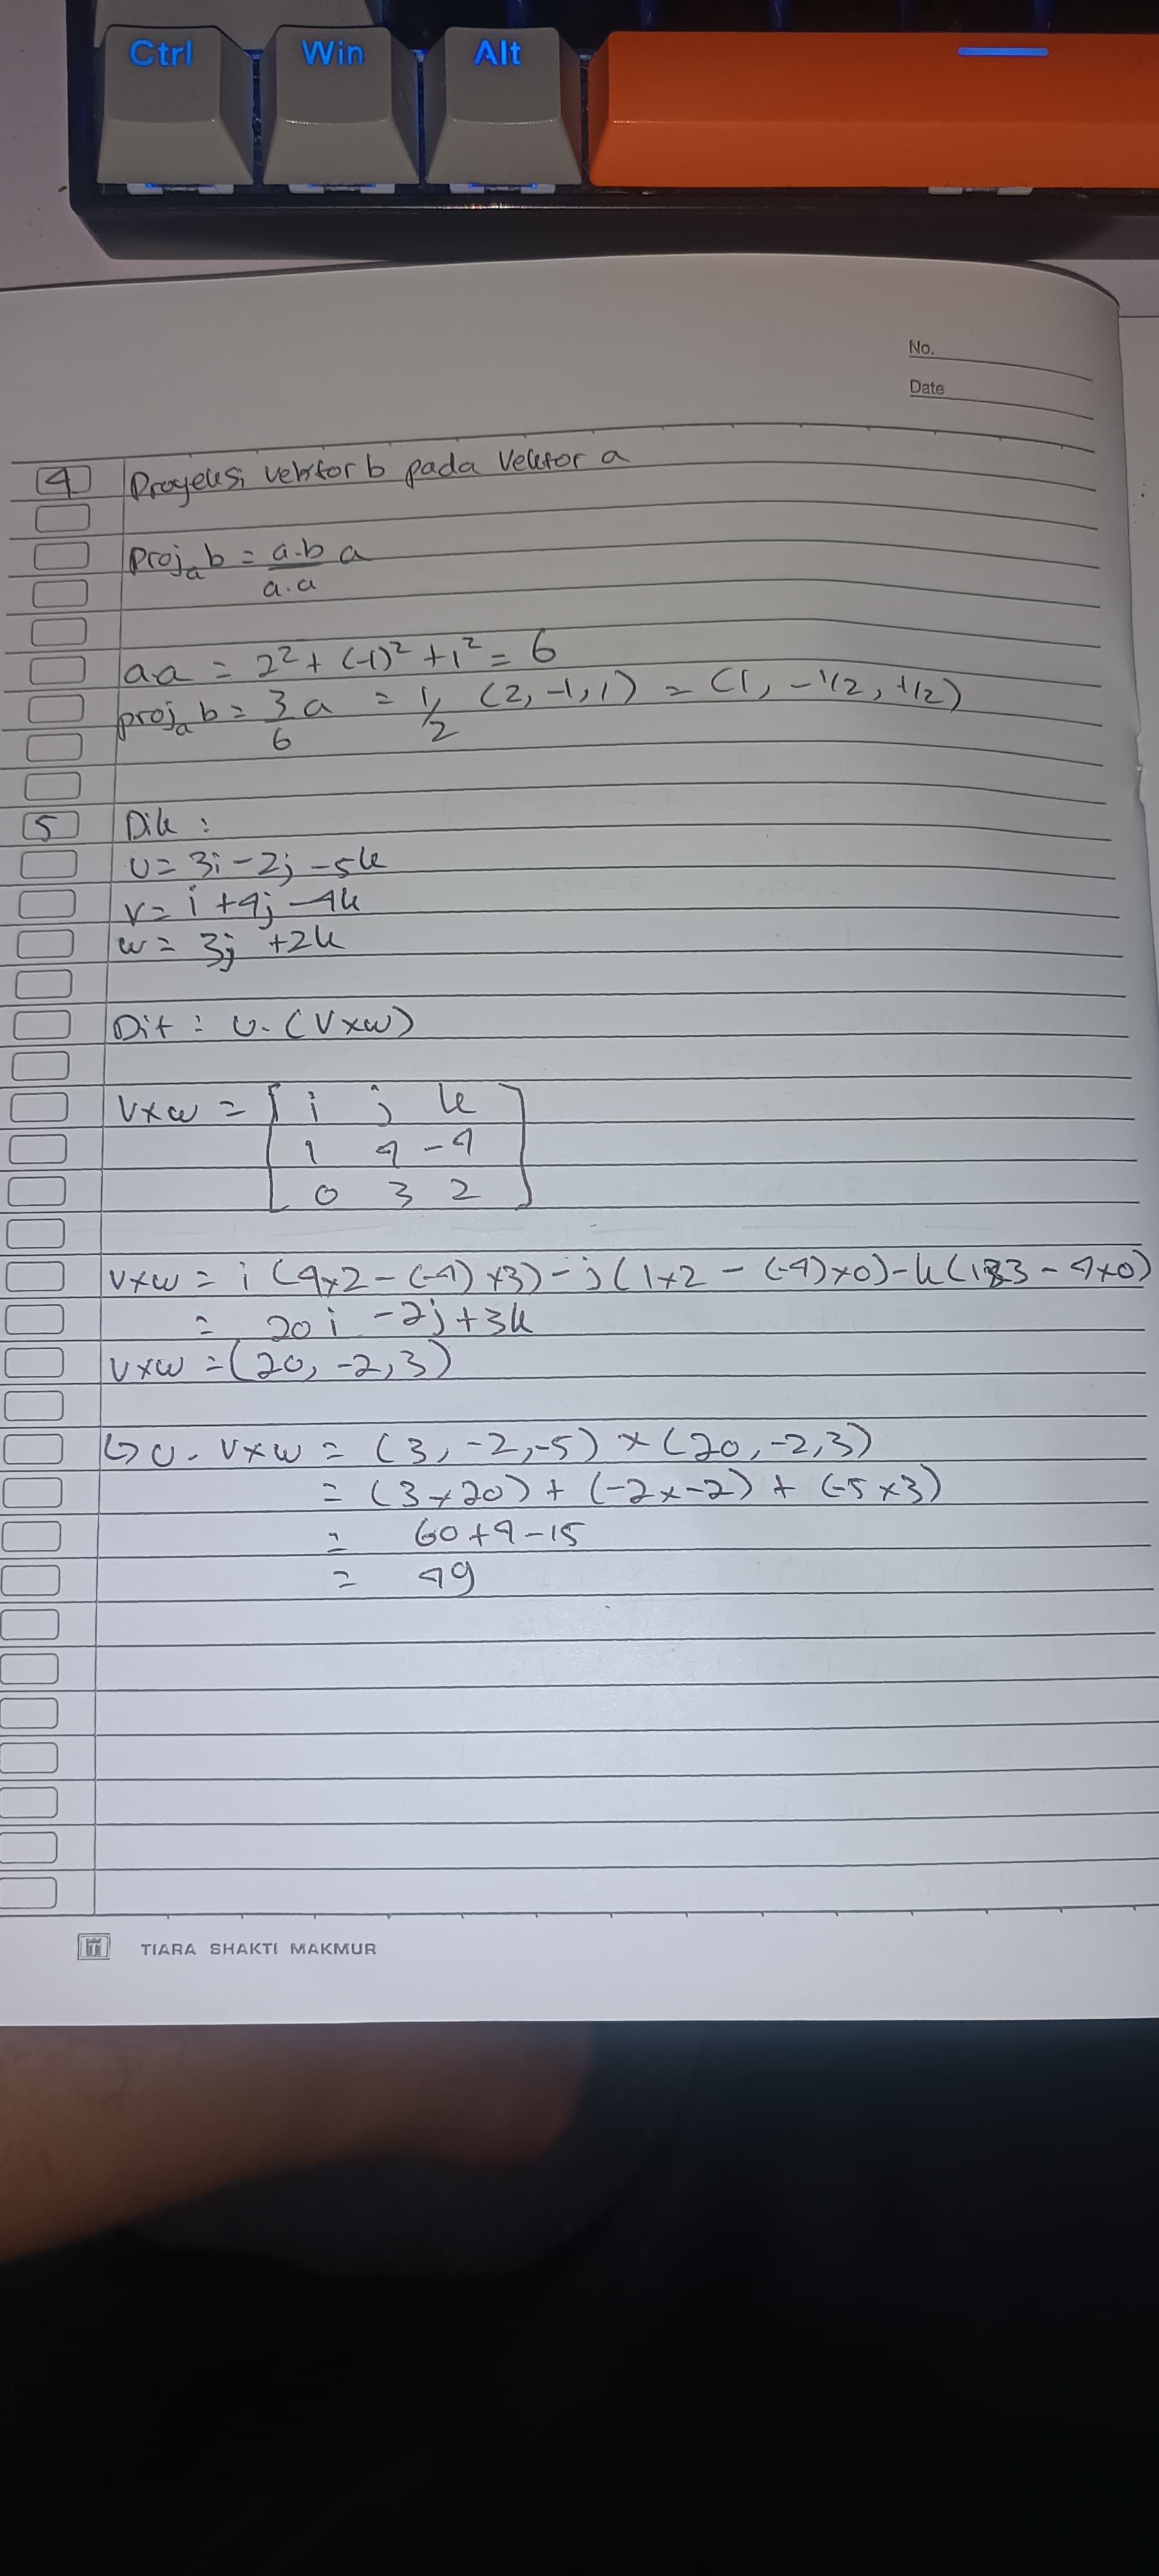 Ctrl Win Alt
No.
Date
4 Proyeksi vektor b pada Vektor a
proj_a b = a.b/a.a a
a.a = 2² + (-1)² + 1² = 6
proj_a b = 3/6 a = 1/2 (2, -1, 1) = (1, -1/2, +1/2)
5 Dik :
U = 3i - 2j - 5k
V = i + 4j - 4k
w = 3j + 2k
Dit : U. (V x w)
V x w = [ i j k
1 4 -4
0 3 2 ]
V x w = i (4x2 - (-4) x3) - j (1x2 - (-4) x0) - k (1x3 - 4x0)
= 20i - 2j + 3k
V x w = (20, -2, 3)
↳ U . V x w = (3, -2, -5) x (20, -2, 3)
= (3 x 20) + (-2 x -2) + (-5 x 3)
= 60 + 4 - 15
= 49
TIARA SHAKTI MAKMUR